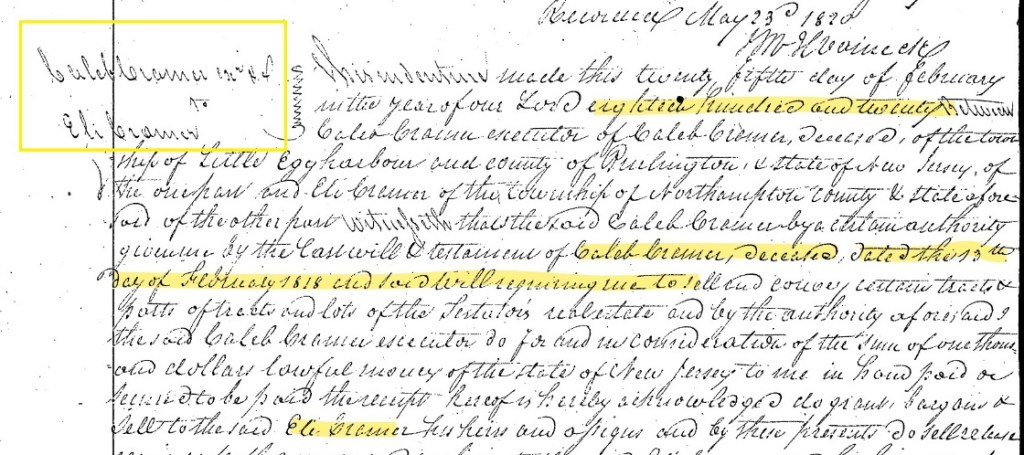 Recorded May 23d 1820
Caleb Cramer exr &c
to
Eli Cramer
This indenture made this twenty fifth day of February
in the year of our Lord eighteen hundred and twenty Between
Caleb Cramer executor of Caleb Cramer, deceased, of the town
ship of Little Eggharbour and county of Burlington, & state of New Jersey, of
the one part and Eli Cramer of the township of Northampton County & state afore
said of the other part Witnesseth that the said Caleb Cramer by a certain authority
given me by the last will & testament of Caleb Cramer, deceased, dated the 13th
day of February 1818 and said will requiring me to sell and convey certain tracts &
parts of tracts and lots of the Testator's real estate and by the authority aforesaid I
the said Caleb Cramer executor do for and in consideration of the sum of one thous
and dollars lawful money of the state of New Jersey to me in hand paid or
secured to be paid the receipt hereof is hereby acknowledged do grant, bargain &
sell to the said Eli Cramer his heirs and assigns and by these presents do sell release